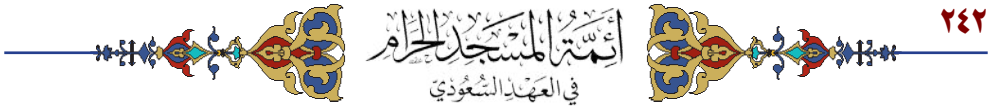 ٢٤٢
أئمة المسجد الحرام
في العهد السعودي